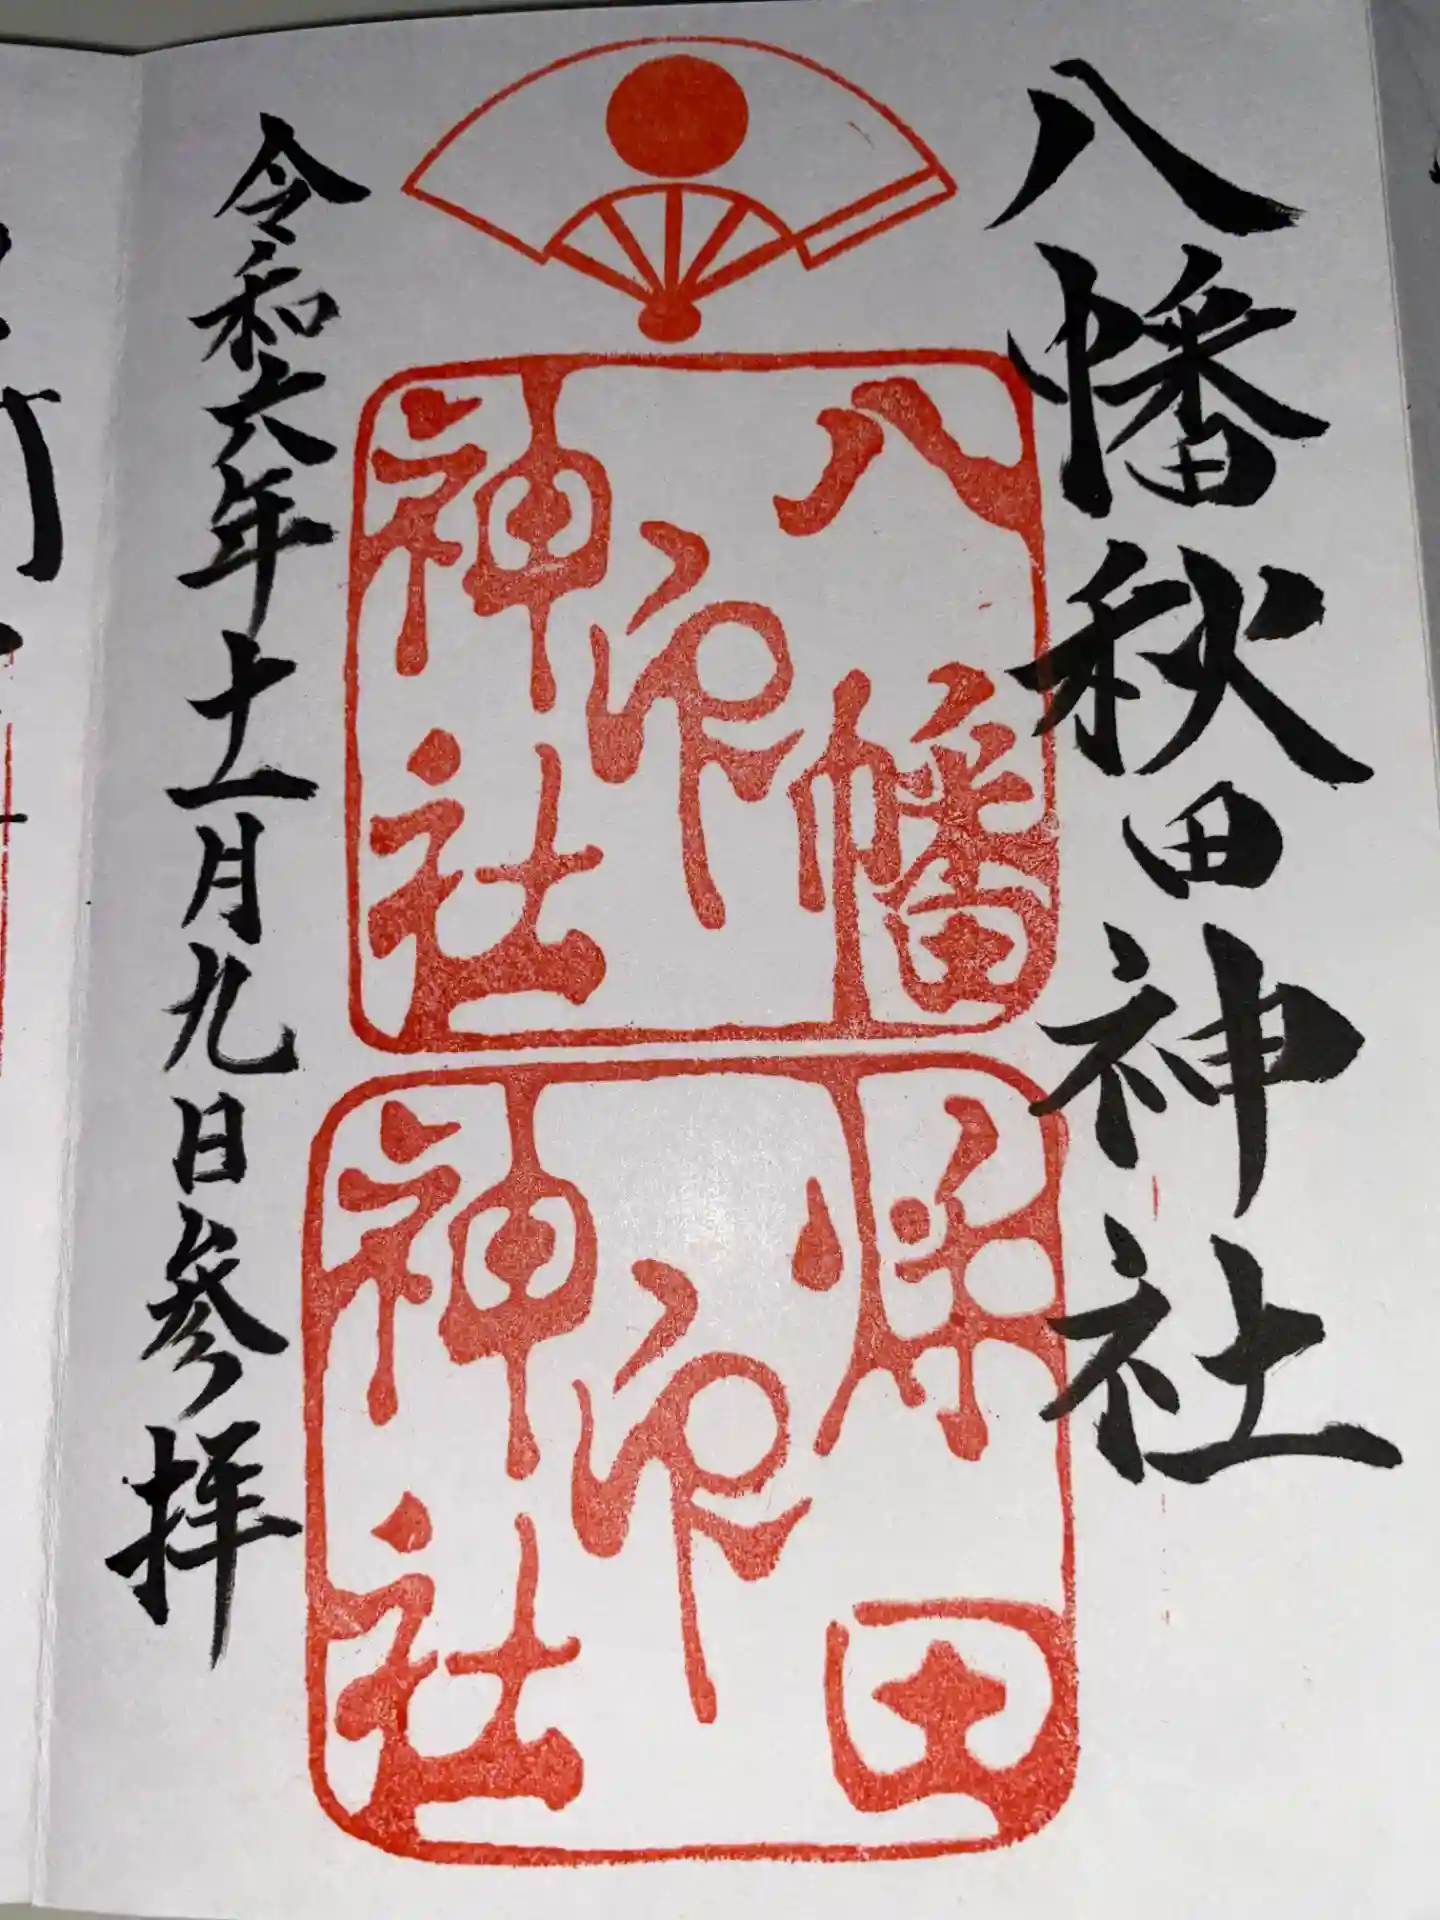 八幡秋田神社
八幡
印
神社
秋田
印
神社
令和六年十一月九日参拝